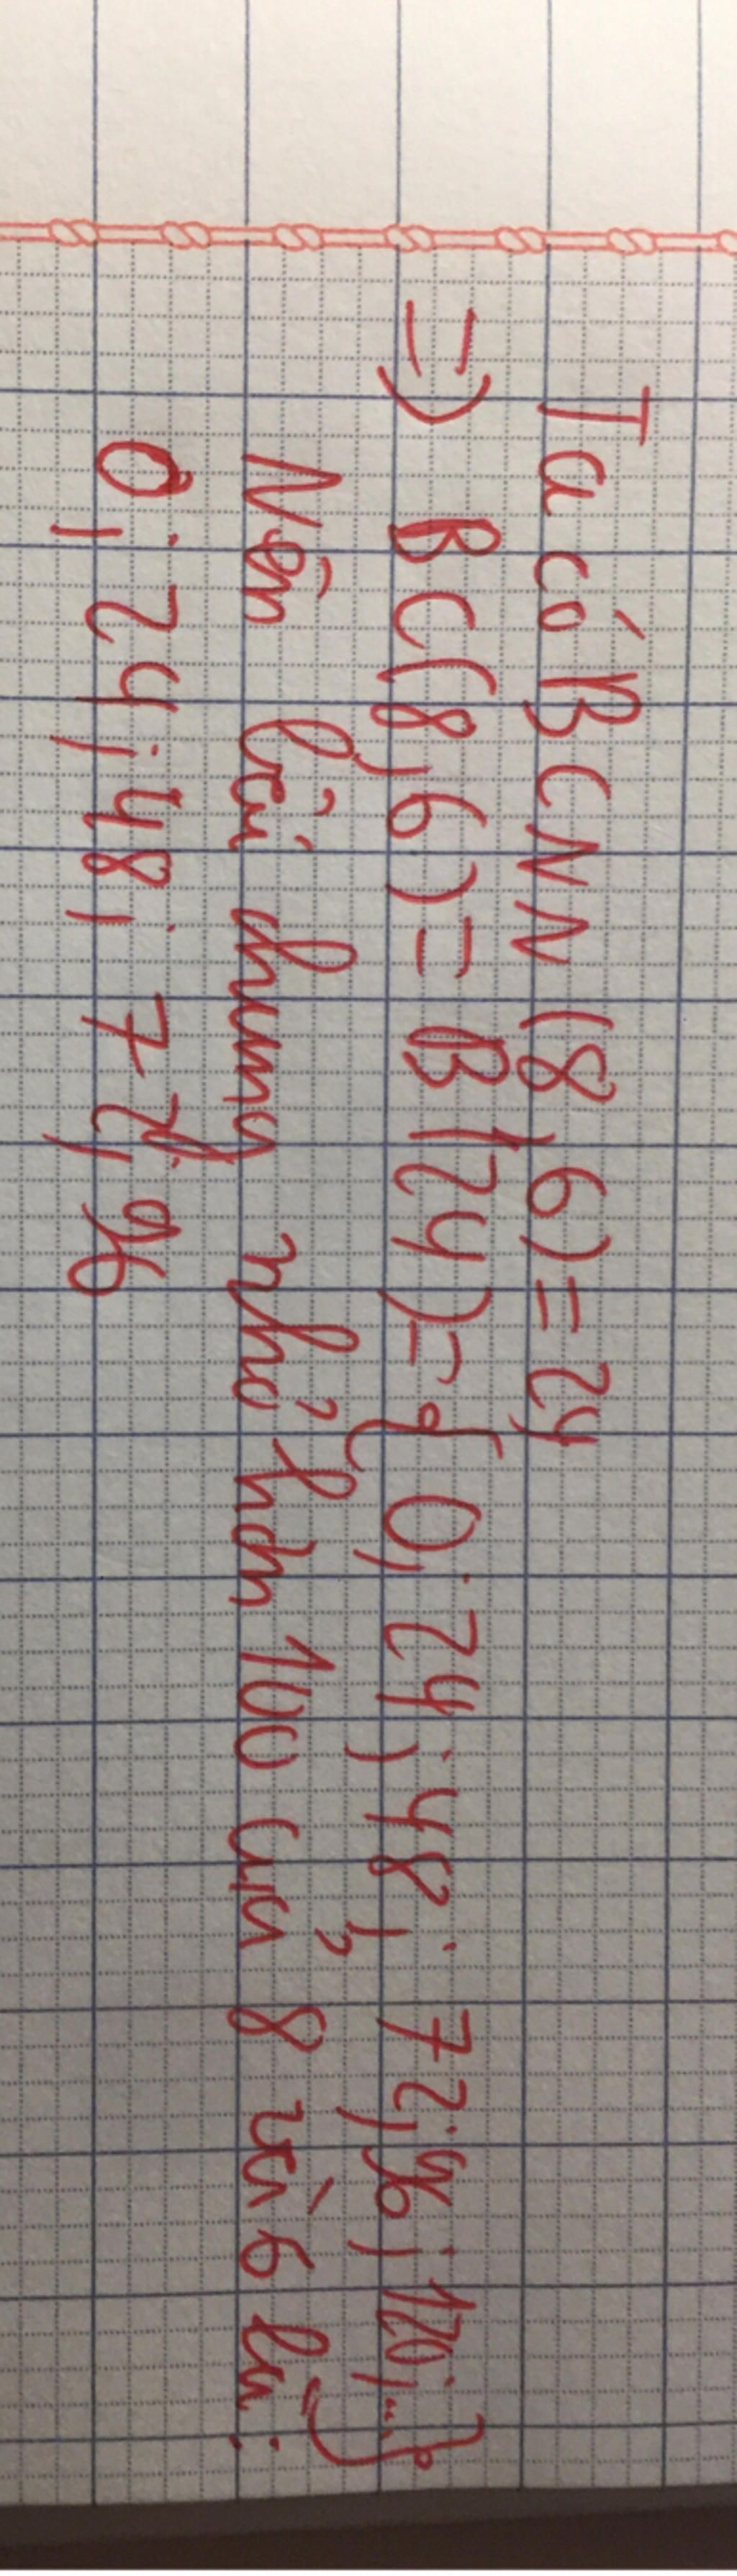 Ta có BCNN (8, 6) = 24
=> BC(8, 6) = B(24) = { 0; 24; 48; 72; 96; 120; ...}
Nên bội chung nhỏ hơn 100 của 8 và 6 là:
0; 24; 48; 72; 96